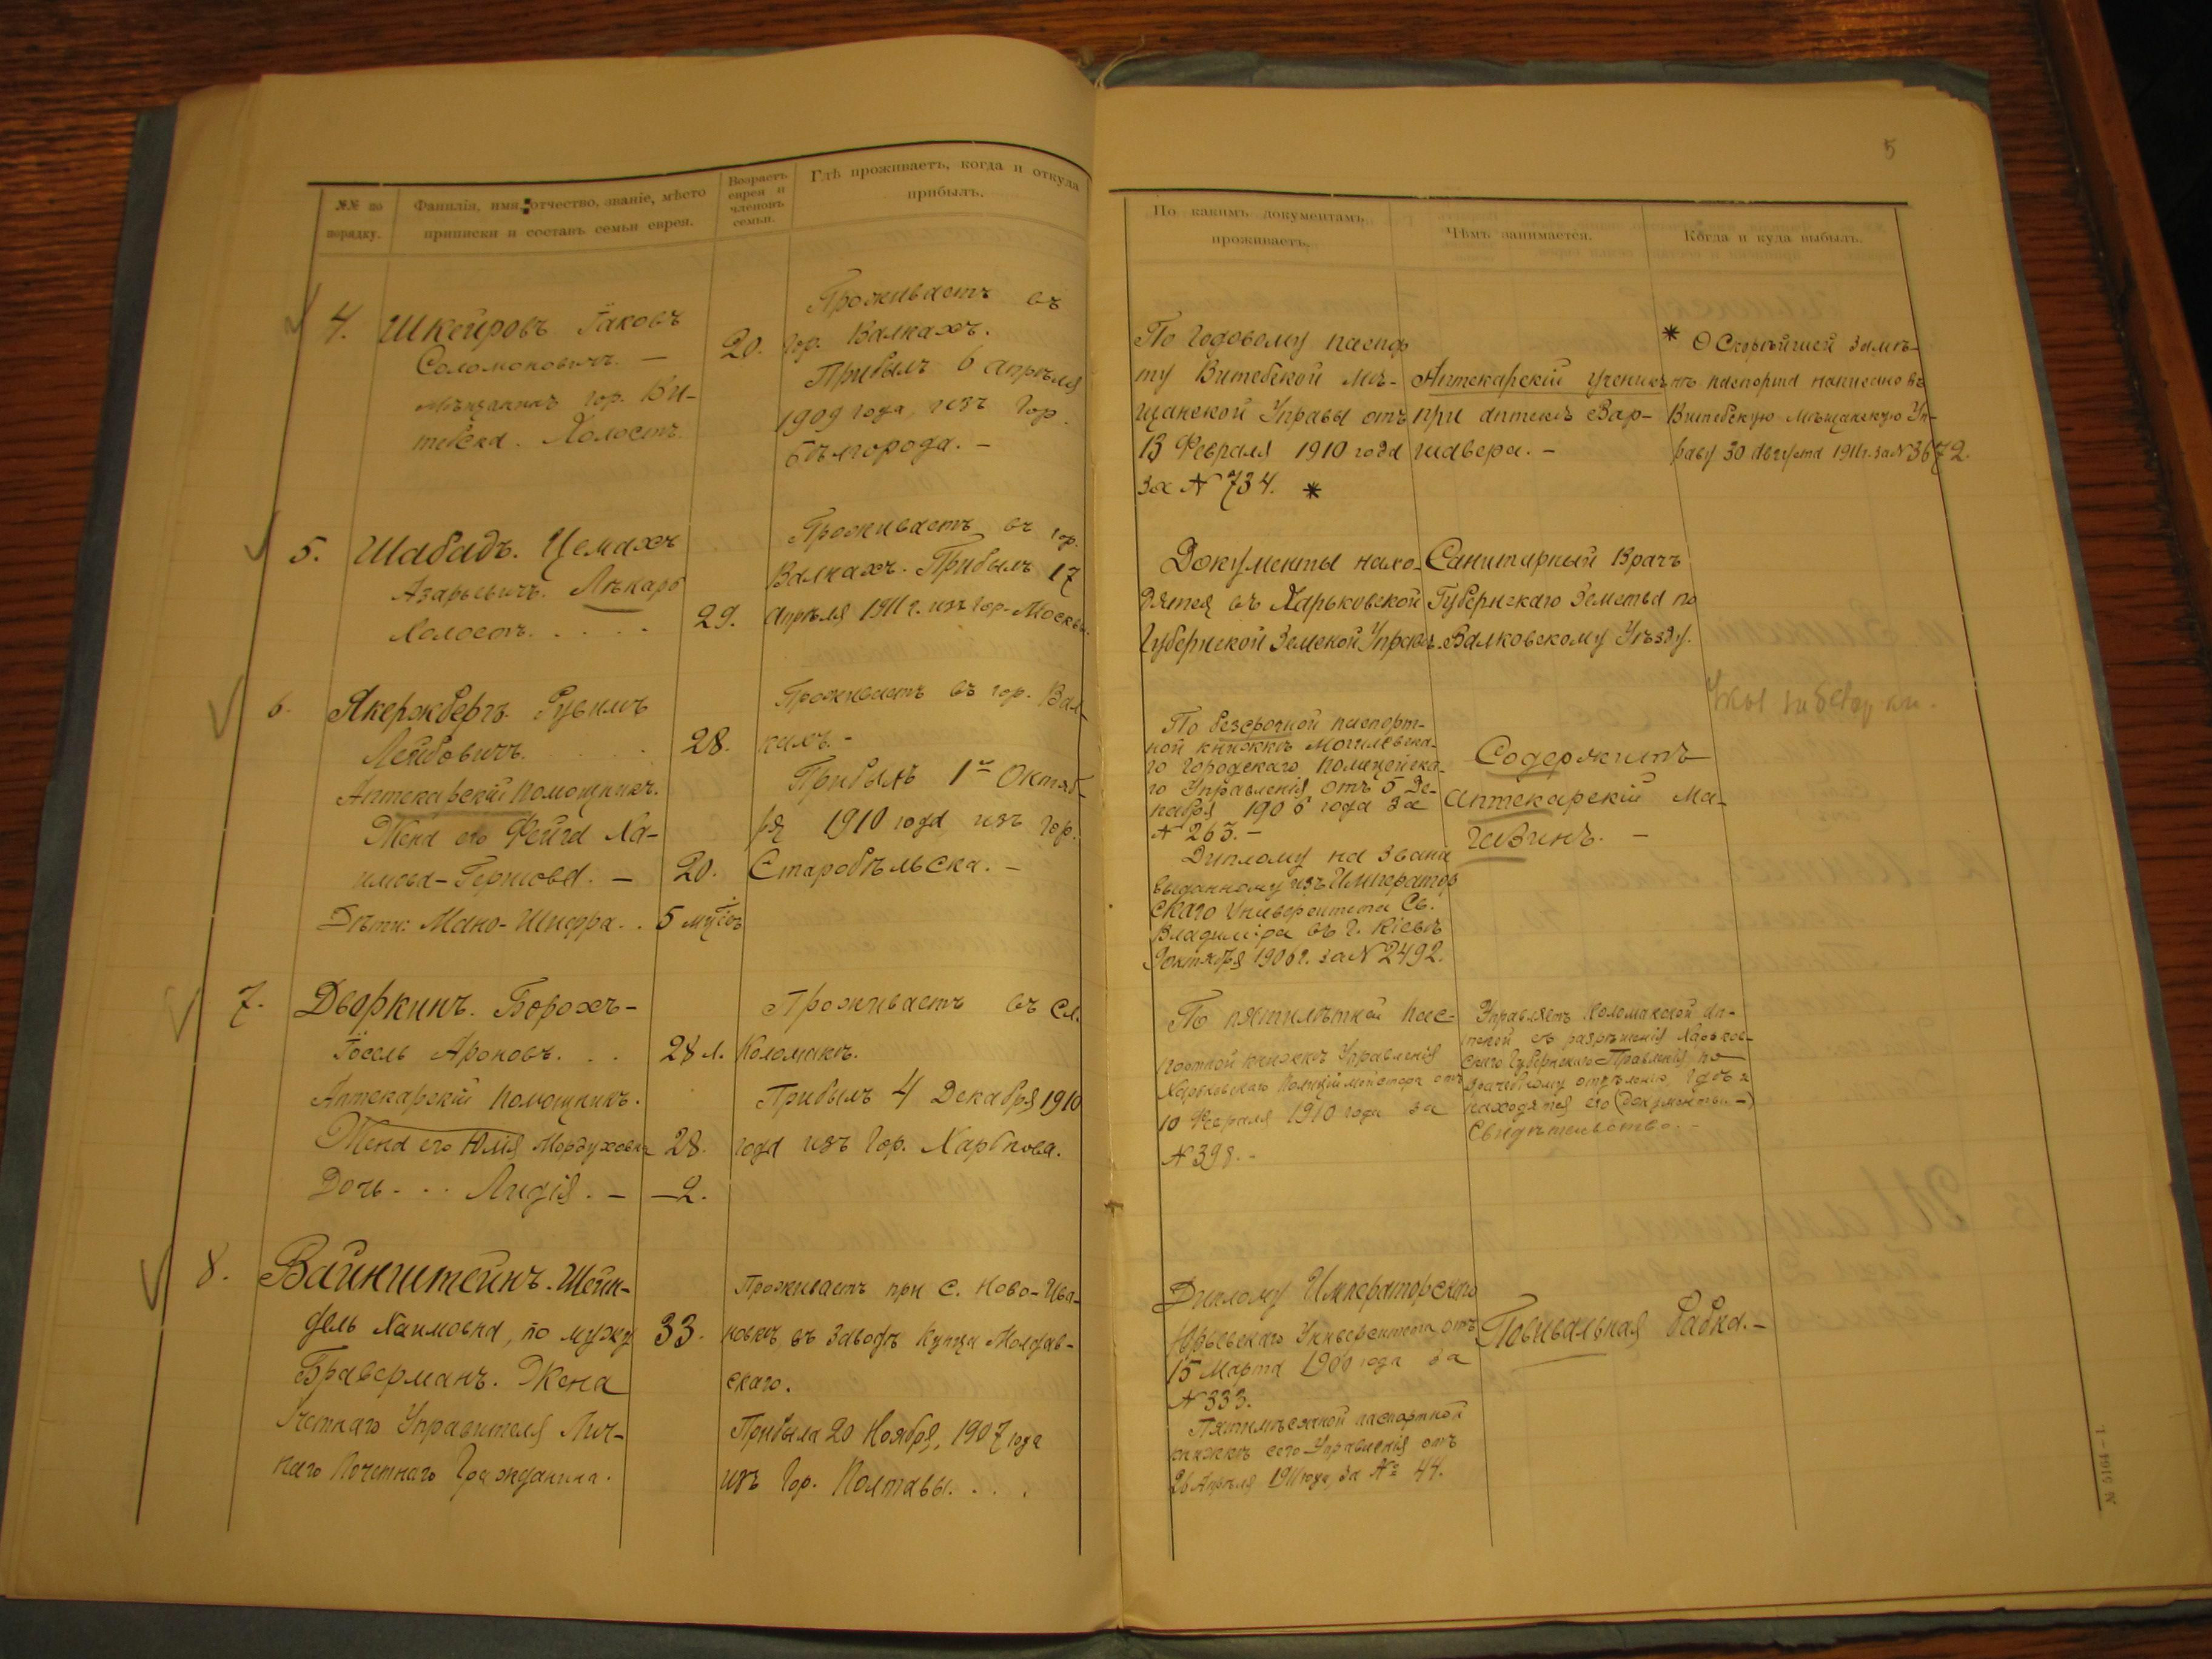 5
№№ по порядку.
Фамилія, имя, отчество, званіе, мѣсто
приписки и составъ семьи еврея.
Возрастъ
еврея и
членовъ
семьи.
Гдѣ проживаетъ, когда и откуда
прибылъ.
По какимъ документамъ
проживаетъ.
Чѣмъ занимается.
Когда и куда выбылъ.
4. Шкейровъ Іаковъ
Соломоновичъ. —
мѣщанинъ гор. Ви-
тебска. Холостъ
20.
Проживаетъ въ
гор. Валкахъ.
Прибылъ 6 апрѣля
1909 года, изъ Гор.
Бѣлгорода. —
По годовому паспор
ту Витебской Мѣ-
щанской Управы отъ
13 Февраля 1910 года
за № 734. *
Аптекарскій ученикъ
при аптекѣ Вар-
шавера. —
* О Скорѣйшей
паспорта написано въ
Витебскую Мѣщанскую Уп-
раву 30 августа 1911 г. за № 3672.
5. Шабадъ. Цемахъ
Азарьевичъ. Лѣкарь
Холостъ. . . . .
29.
Проживаетъ въ гор.
Валкахъ. Прибылъ 17
Апрѣля 1911 г. изъ гор. Москвы.
Документы нахо-
дятся въ Харьковской
Губернской Земской Управѣ.
Санитарный Врачъ
Губернскаго Земства по
Валковскому Уѣзду.
6. Якержбергъ. Рувимъ
Лейбовичъ.
Аптекарскій помощникъ.
Жена его Фейга Ха-
имова-Гершова. —
Дѣти: Мано-Шифра. .
28.
20.
5
Проживаетъ въ гор. Вал-
кахъ. —
Прибылъ 1го Октяб-
ря 1910 года изъ гор.
Старобѣльска. —
По безсрочной паспорт-
ной книжкѣ Могилевска-
го Городскаго Полицейска-
го Управленія отъ 5 Де-
кабря 1906 года за
№ 263. —
Диплому на званіе
выданному изъ Император
скаго Университета Св.
Владиміра въ г. Кіевѣ
Октября 1906 г. за № 2492.
Содержитъ
аптекарскій Ма-
газинъ. —
7. Дворкинъ. Борохъ-
Іосель Ароновъ. . .
Аптекарскій помощникъ.
Жена его Юлія Мордуховна
Дочь . . . Лидія. —
28 л.
28.
— 2.
Проживаетъ въ сл.
Коломакѣ.
Прибылъ 4 Декабря 1910
года изъ Гор. Харькова.
По пятилѣтней пас-
портной книжкѣ Управленія
Харьковскаго Полиціймейстера отъ
10 Февраля 1910 года за
№ 398. —
Управляетъ Коломакской ап-
текой съ разрѣшенія Харьков-
скаго Губернскаго Правленія по
врачебному отдѣленію, гдѣ и
находятся его (документы —)
Свидѣтельство. —
8. Вайнштейнъ. Шейн-
дель Хаимовна, по мужу
Браверманъ. Жена
Управителя Лич-
наго Почетнаго Гражданина.
33.
Проживаетъ при с. Ново-Ива-
новкѣ, въ Заводѣ Купца Молдав-
скаго.
Прибыла 20 Ноября, 1907 года
изъ Гор. Полтавы. . . .
Диплому Императорскаго
Юрьевскаго Университета отъ
15 Марта 1900 года за
№ 333.
Пятимѣсячной паспортной
книжкѣ сего Управленія отъ
26 Апрѣля 1911 года, за № 44.
Повивальная бабка. —